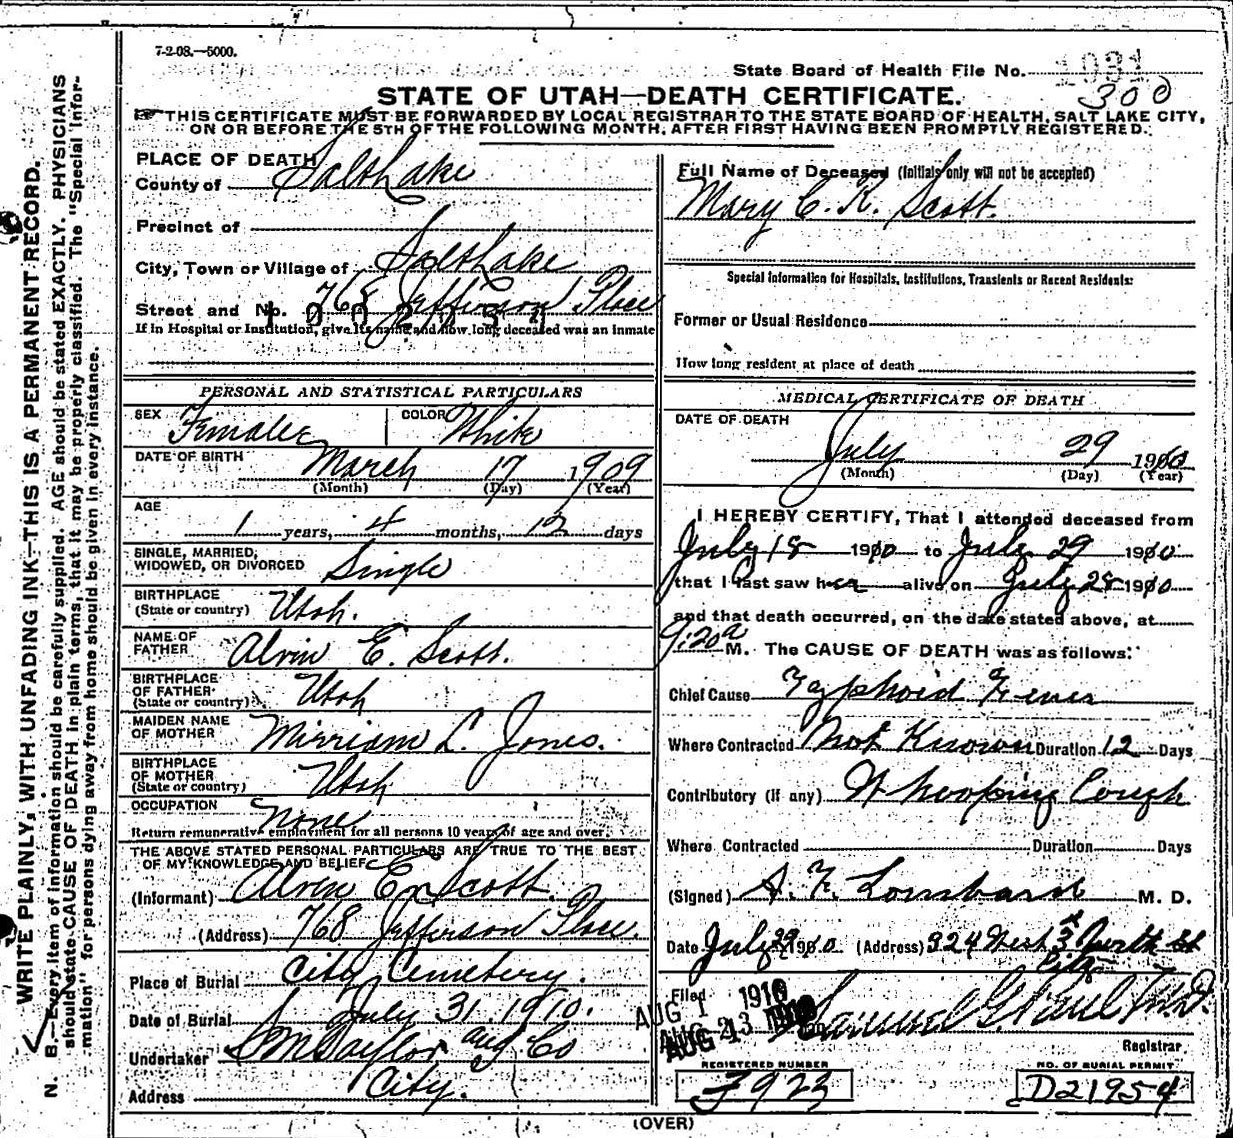 7-2-08.—5000.
State Board of Health File No. 1931
300
STATE OF UTAH—DEATH CERTIFICATE.
THIS CERTIFICATE MUST BE FORWARDED BY LOCAL REGISTRAR TO THE STATE BOARD OF HEALTH, SALT LAKE CITY,
ON OR BEFORE THE 5TH OF THE FOLLOWING MONTH, AFTER FIRST HAVING BEEN PROMPTLY REGISTERED.
WRITE PLAINLY, WITH UNFADING INK—THIS IS A PERMANENT RECORD.
N. B.—Every item of information should be carefully supplied. AGE should be stated EXACTLY. PHYSICIANS
should state CAUSE OF DEATH in plain terms, that it may be properly classified. The "Special Infor-
mation" for persons dying away from home should be given in every instance.
PLACE OF DEATH
County of Salt Lake
Precinct of
City, Town or Village of Salt Lake
Street and No. 765 Jefferson Place
If in Hospital or Institution, give its name and how long deceased was an inmate
PERSONAL AND STATISTICAL PARTICULARS
SEX Female COLOR White
DATE OF BIRTH March 17 1909
(Month) (Day) (Year)
AGE
1 years, 4 months, 12 days
SINGLE, MARRIED,
WIDOWED, OR DIVORCED Single
BIRTHPLACE
(State or country) Utah.
NAME OF
FATHER Alvin E. Scott.
BIRTHPLACE
OF FATHER
(State or country) Utah
MAIDEN NAME
OF MOTHER Mirriam L. Jones.
BIRTHPLACE
OF MOTHER
(State or country) Utah
OCCUPATION None
Return remunerative employment for all persons 10 years of age and over.
THE ABOVE STATED PERSONAL PARTICULARS ARE TRUE TO THE BEST
OF MY KNOWLEDGE AND BELIEF
(Informant) Alvin E. Scott.
(Address) 768 Jefferson Place
Place of Burial City Cemetery.
Date of Burial July 31. 1910.
Undertaker S M Taylor and Co
Address City.
Full Name of Deceased (Initials only will not be accepted)
Mary C. K. Scott.
Special information for Hospitals, Institutions, Transients or Recent Residents:
Former or Usual Residence
How long resident at place of death
MEDICAL CERTIFICATE OF DEATH
DATE OF DEATH
July 29 1910
(Month) (Day) (Year)
I HEREBY CERTIFY, That I attended deceased from
July 18 1910 to July 29 1910
that I last saw her alive on July 28 1910
and that death occurred, on the date stated above, at
9:20 a M. The CAUSE OF DEATH was as follows:
Chief Cause Typhoid Fever
Where Contracted Not Known Duration 12 Days
Contributory (if any) Whooping Cough
Where Contracted Duration Days
(Signed) S. F. Lombard M. D.
Date July 29 1910 (Address) 324 West 3 North St
City
Filed AUG 1 1910 Samuel G. Paul M.D.
AUG 1910
Registrar
REGISTERED NUMBER
F923
NO. OF BURIAL PERMIT
D21954
(OVER)